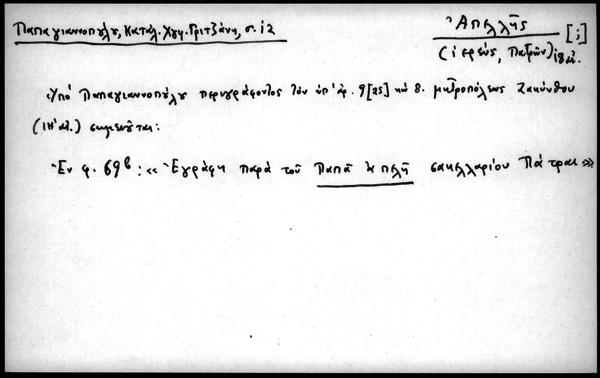 Παπαγιαννοπούλου, Κατάλ. Χφφ. Γριτζάνη, σ. 12
Ἀπελλῆς [;]
(ἱερεύς, Πατρῶν) ιη αἰ.
Ὑπό Παπαγιαννοπούλου περιγράφοντος τόν ὑπ' ἀρ. 9[25] κώδ. μητροπόλεως Ζακύνθου
(ΙΗ' αἰ.) σημειοῦται:
Ἐν φ. 69β: «Ἐγράφη παρά τοῦ Παπᾶ πελῆ σακελλαρίου Πάτραι»